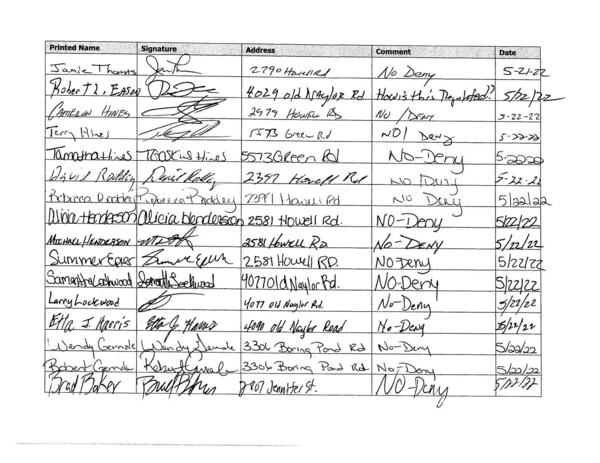 Printed Name Signature Address Comment Date
Jamie Thomas 2790 Howell Rd No Deny 5-21-22
Robert L. Eason 4029 old Naylor Rd How is this Regulated? 5/22/22
Cameron Hines 2979 Howell Rd No / Deny 5-22-22
Terry Hines 5573 Green Rd NO! Deny 5-22-22
Tamatha Hines Hines 5573 Green Rd No-Deny 5-2022
David David 2397 Howell Rd No / Deny 5-22-22
Rebecca Rebecca Howell Rd No Deny 5/22/22
Alicia Henderson Alicia Henderson 2581 Howell Rd. NO-Deny 5/22/22
Michael Henderson 2581 Howell Rd No-Deny 5/22/22
Summer Epler Summer Epler 2581 Howell RD. NO Deny 5/22/22
Samantha Lockwood 4077 Old Naylor Rd. NO-Deny 5/22/22
Larry Lockwood 4077 old Naylor Rd. No-Deny 5/22/22
Etta J. Harris Etta J. Harris 4090 old Naylor Road No-Deny 5/22/22
Wendy Gemale Wendy Gemale 3306 Boring Pond Rd No-Deny 5/22/22
Robert Gemale Robert Gemale 3306 Boring Pond Rd No-Deny 5/22/22
Brad Baker Brad Baker 2707 Jennifer St. NO-Deny 5/22/22